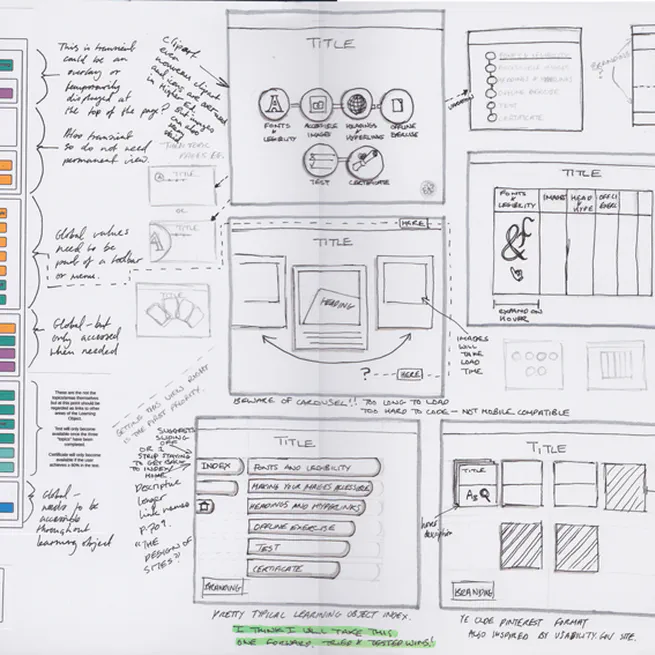 This is transient
could be an
overlay or
temporarily
displayed at
the top of the page?
Also transient
so do not need
permanent view.
Global values
need to be
part of a toolbar
or menu.
Global - but
only accessed
when needed
These are the not the
topics/areas themselves
but at this point should be
regarded as links to other
areas of the Learning
Object.
Test will only become
available once the three
"topics" have been
completed.
Certificate will only become
available if the user
achieves a 80% in the test.
Global -
needs to be
accessible
throughout
learning object
clipart
even
in Higher Ed.
OR
TITLE
TITLE
TITLE
FONTS
&
LEGIBILITY
ACCESSIBLE
IMAGES
HEADINGS
&
HYPERLINKS
OFFLINE
EXERCISE
TEST
CERTIFICATE
HERE
TITLE
HEADING
? HERE
IMAGES
WILL
TAKE
LOAD
TIME
BEWARE OF CAROUSEL!! TOO LONG TO LOAD
TOO HARD TO CODE - NOT MOBILE COMPATIBLE
FONTS & LEGIBILITY
HEADINGS & HYPERLINKS
OFFLINE EXERCISE
TEST
CERTIFICATE
BRANDING?
TITLE
FONTS
&
LEGIBILITY
IMAGE
HEAD
&
HYPE
OFFLI
EXERC
&
EXPAND ON
HOVER
GETTING THIS VIEW RIGHT
IS THE FIRST PRIORITY.
SUGGESTS
SLIDING
OFF
OR I
STRIP STAYING
TO GET BACK
TO INDEX/
HOME
Descriptive
longer
link names
P.709.
"THE
DESIGN OF
SITES"
TITLE
INDEX
FONTS AND LEGIBILITY
MAKING YOUR IMAGES ACCESSIBLE
HEADINGS AND HYPERLINKS
OFFLINE EXERCISE
TEST
CERTIFICATE
BRANDING
PRETTY TYPICAL LEARNING OBJECT INDEX.
I THINK I WILL TAKE THIS
ONE FORWARD. TRIED & TESTED WINS!
TITLE
TITLE
hover
description
BRANDING
YE OLDE PINTEREST FORMAT
ALSO INSPIRED BY USABILITY.GOV SITE.